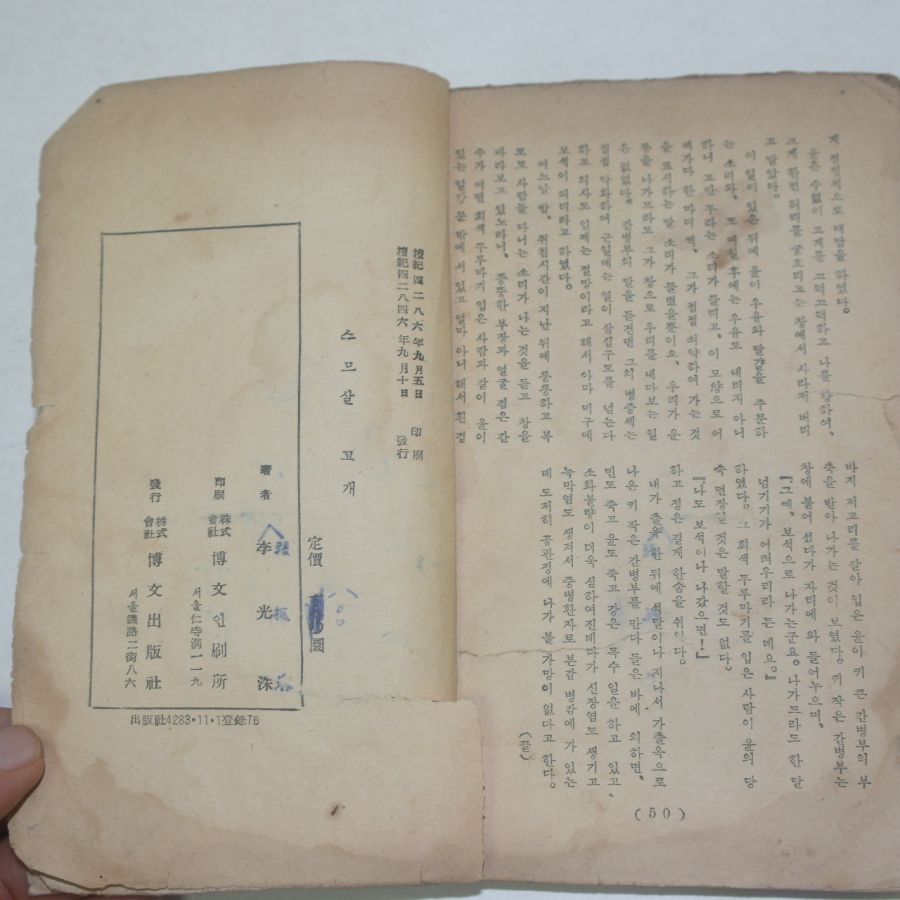 게 정적으로 대답을 하였다.
윤은 수없이 고개를 끄덕끄덕하고 나를 향하여,
크게 한번 허리를 굽흐리고는 창에서 사라져 버리
고 말았다.
이 일이 있은 뒤에 윤이 우유와 달걀을 주문하
는 소리와, 또 며칠 후에는 우유도 내리지 아니
하니 고만 두라는 소리가 들리고, 이 모양으로 어
쩌가다 한 마디씩, 그가 점점 쇠약하여 가는 것
을 표시하는 말 소리가 들렸을뿐이요, 우리가 운
동을 나가드라도 그가 창으로 우리를 내다보는 일
은 없었다. 간병부의 말을 듣건댄 그의 병증세는
점점 악화하여 근일에는 열이 삼십구도를 넘는다
하고 의사도 인제는 절망이라고 해서 아마 미구에
보석이 되리라고 하였다.
어느날 밤, 취침시간이 지난 뒤에 퉁퉁하고 복
도로 사람들 다니는 소리가 나는 것을 듣고 창을
바라보고 있노라니, 뚱뚱한 부장과 얼굴 검은 간
수가 어떤 회색 두루마기 입은 사람과 같이 윤이
있는 일방 문 밖에 서 있고 얼마 아니 해서 흰 겹
바지 저고리를 갈아 입은 윤이 키 큰 간병부의 부
축을 받아 나가는 것이 보였다. 키 작은 간병부는
창에 붙어 섰다가 자리에 와 들어누으며,
『그예, 보석으로 나가는군요. 나가드라도 한 달
넘기기가 어려우리라든데요.』
하였다. 그 회색 두루마기를 입은 사람이 윤의 당
숙 면장일 것은 말할 것도 없다.
『나도 보석이나 나갔으면!』
하고 정은 길게 한숨을 쉬었다.
내가 출옥한 뒤에 석달이나 지나서 가출옥으로
나온 키 작은 간병부를 만나 들은 바에 의하면,
민도 죽고 윤도 죽고 강은 목수 일을 하고 있고,
소화불량이 더욱 심하여진데다가 신장염도 생기고
늑막염도 생겨서 중병환자로 본감 병감에 가 있는
데 도저히 공판정에 나가 볼 가망이 없다고 한다.
(끝)
(50)
檀紀四二八六年九月五日 印刷
檀紀四二八六年九月十日 發行
스므살 고개
定價 圜
著者 李光洙
印刷 株式會社 博文인刷所
서울仁寺洞一一九
發行 株式會社 博文出版社
서울鍾路二街八六
出版社4283·11·1登錄76